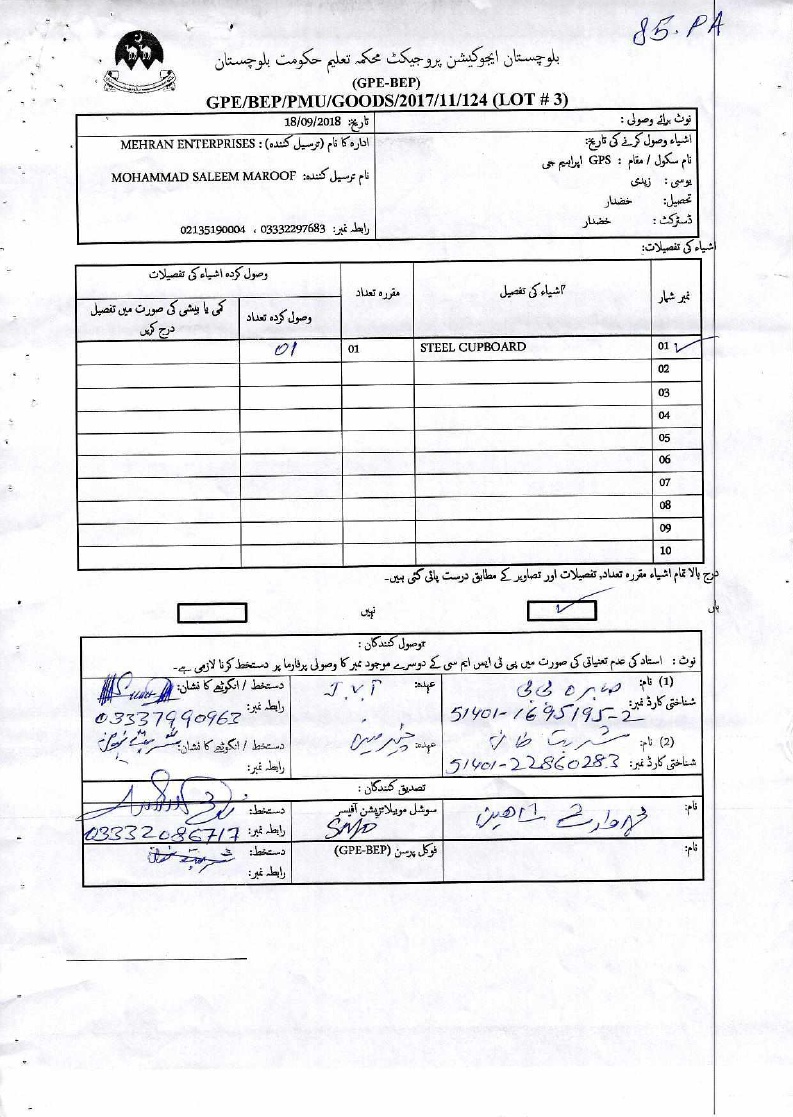 85.PA
بلوچستان ایجوکیشن پروجیکٹ محکمہ تعلیم حکومت بلوچستان
(GPE-BEP)
GPE/BEP/PMU/GOODS/2017/11/124 (LOT # 3)
نوٹ برائے وصولی :
اشیاء وصول کرنے کی تاریخ:
نام سکول / مقام : GPS ابراہیم جی
یوسی : زیدی
تحصیل: خضدار
ڈسٹرکٹ : خضدار
تاریخ: 18/09/2018
ادارہ کا نام (ترسیل کنندہ) : MEHRAN ENTERPRISES
نام ترسیل کنندہ: MOHAMMAD SALEEM MAROOF
رابطہ نمبر: 03332297683 ، 02135190004
اشیاء کی تفصیلات:
نمبر شمار اشیاء کی تفصیل مقررہ تعداد وصول کردہ اشیاء کی تفصیلات
وصول کردہ تعداد کمی یا بیشی کی صورت میں تفصیل درج کریں
01 STEEL CUPBOARD 01 01
02
03
04
05
06
07
08
09
10
درج بالا تمام اشیاء مقررہ تعداد, تفصیلات اور تصاویر کے مطابق درست پائی گئی ہیں۔
ہاں نہیں
وصول کنندگان :
نوٹ : استاد کی عدم تعیناتی کی صورت میں پی ٹی ایس ایم سی کے دوسرے موجود ممبر کا وصولی پرفارما پر دستخط کرنا لازمی ہے۔
(1) نام: صابرہ بی بی عہدہ: J.V.T دستخط / انگوٹھے کا نشان:
شناختی کارڈ نمبر: 51401-1695195-2 رابطہ نمبر: 03337990963
(2) نام: عہدہ: چیئرمین دستخط / انگوٹھے کا نشان:
شناختی کارڈ نمبر: 51401-22860283 رابطہ نمبر:
تصدیق کنندگان :
نام: سوشل موبیلائزیشن آفیسر SMO دستخط:
رابطہ نمبر: 03332086717
نام: فوکل پرسن (GPE-BEP) دستخط:
رابطہ نمبر: